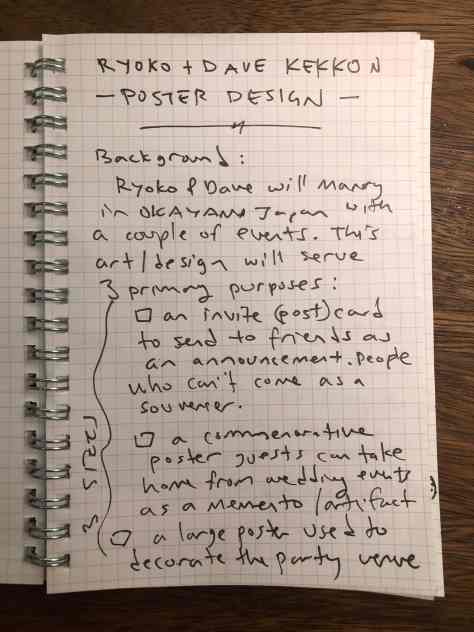 RYOKO + DAVE KEKKON
— POSTER DESIGN —
Background:
Ryoko & Dave will Marry
in OKAYAMA Japan with
a couple of events. This
art/design will serve
3 primary purposes:
□ an invite (post)card
to send to friends as
an announcement. People
who can't come as a
souvener.
□ a commemorative
poster guests can take
home from wedding events
as a memento/artifact :)
□ a large poster used to
decorate the party venue